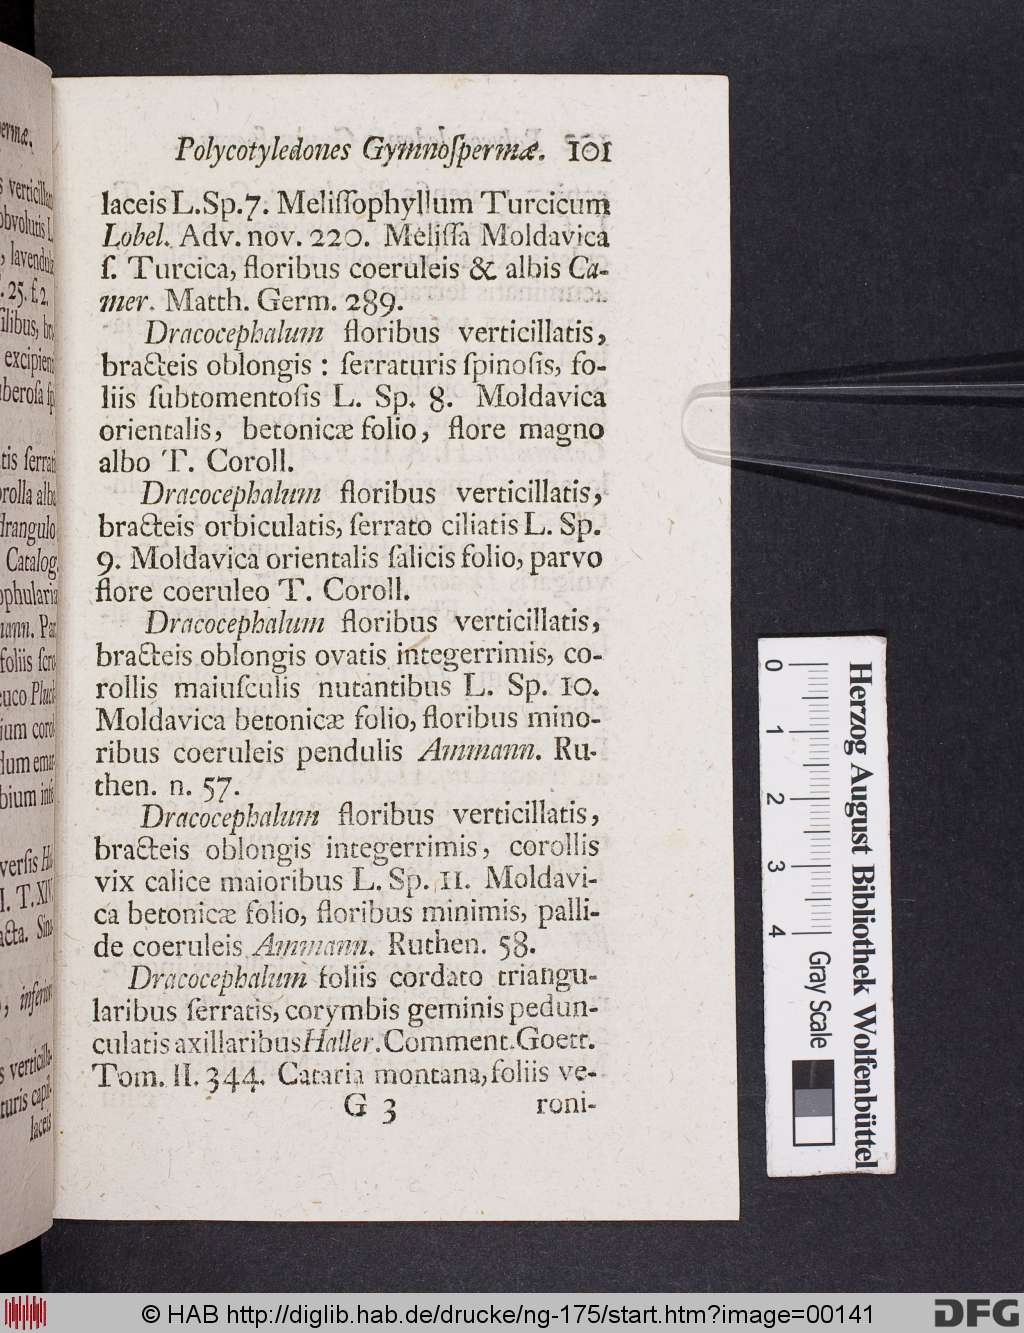 Polycotyledones Gymnoſpermæ. 101
laceis L. Sp. 7. Meliſſophyllum Turcicum
Lobel. Adv. nov. 220. Meliſſa Moldavica
ſ. Turcica, floribus coeruleis & albis Ca-
mer. Matth. Germ. 289.
Dracocephalum floribus verticillatis,
bracteis oblongis : ſerraturis ſpinoſis, fo-
liis ſubtomentoſis L. Sp. 8. Moldavica
orientalis, betonicæ folio, flore magno
albo T. Coroll.
Dracocephalum floribus verticillatis,
bracteis orbiculatis, ſerrato ciliatis L. Sp.
9. Moldavica orientalis ſalicis folio, parvo
flore coeruleo T. Coroll.
Dracocephalum floribus verticillatis,
bracteis oblongis ovatis integerrimis, co-
rollis maiuſculis nutantibus L. Sp. 10.
Moldavica betonicæ folio, floribus mino-
ribus coeruleis pendulis Ammann. Ru-
then. n. 57.
Dracocephalum floribus verticillatis,
bracteis oblongis integerrimis, corollis
vix calice maioribus L. Sp. 11. Moldavi-
ca betonicæ folio, floribus minimis, palli-
de coeruleis Ammann. Ruthen. 58.
Dracocephalum foliis cordato triangu-
laribus ſerratis, corymbis geminis pedun-
culatis axillaribus Haller. Comment. Goett.
Tom. II. 344. Cataria montana, foliis ve-
G 3 roni-
verticillatis
obvolutis L.
, lavendulæ
. 25. f. 2.
excipiens
tis ſerrati
rolla alba
Catalog.
ophularia
mann. Par.
foliis ſcro-
uco Pluck
ium corol
verſis
l. T. XIV.
acta.
, inferior
s verticilla-
turis capil-
laceis
0 1 2 3 4
Gray Scale
Herzog August Bibliothek Wolfenbüttel
© HAB http://diglib.hab.de/drucke/ng-175/start.htm?image=00141
DFG